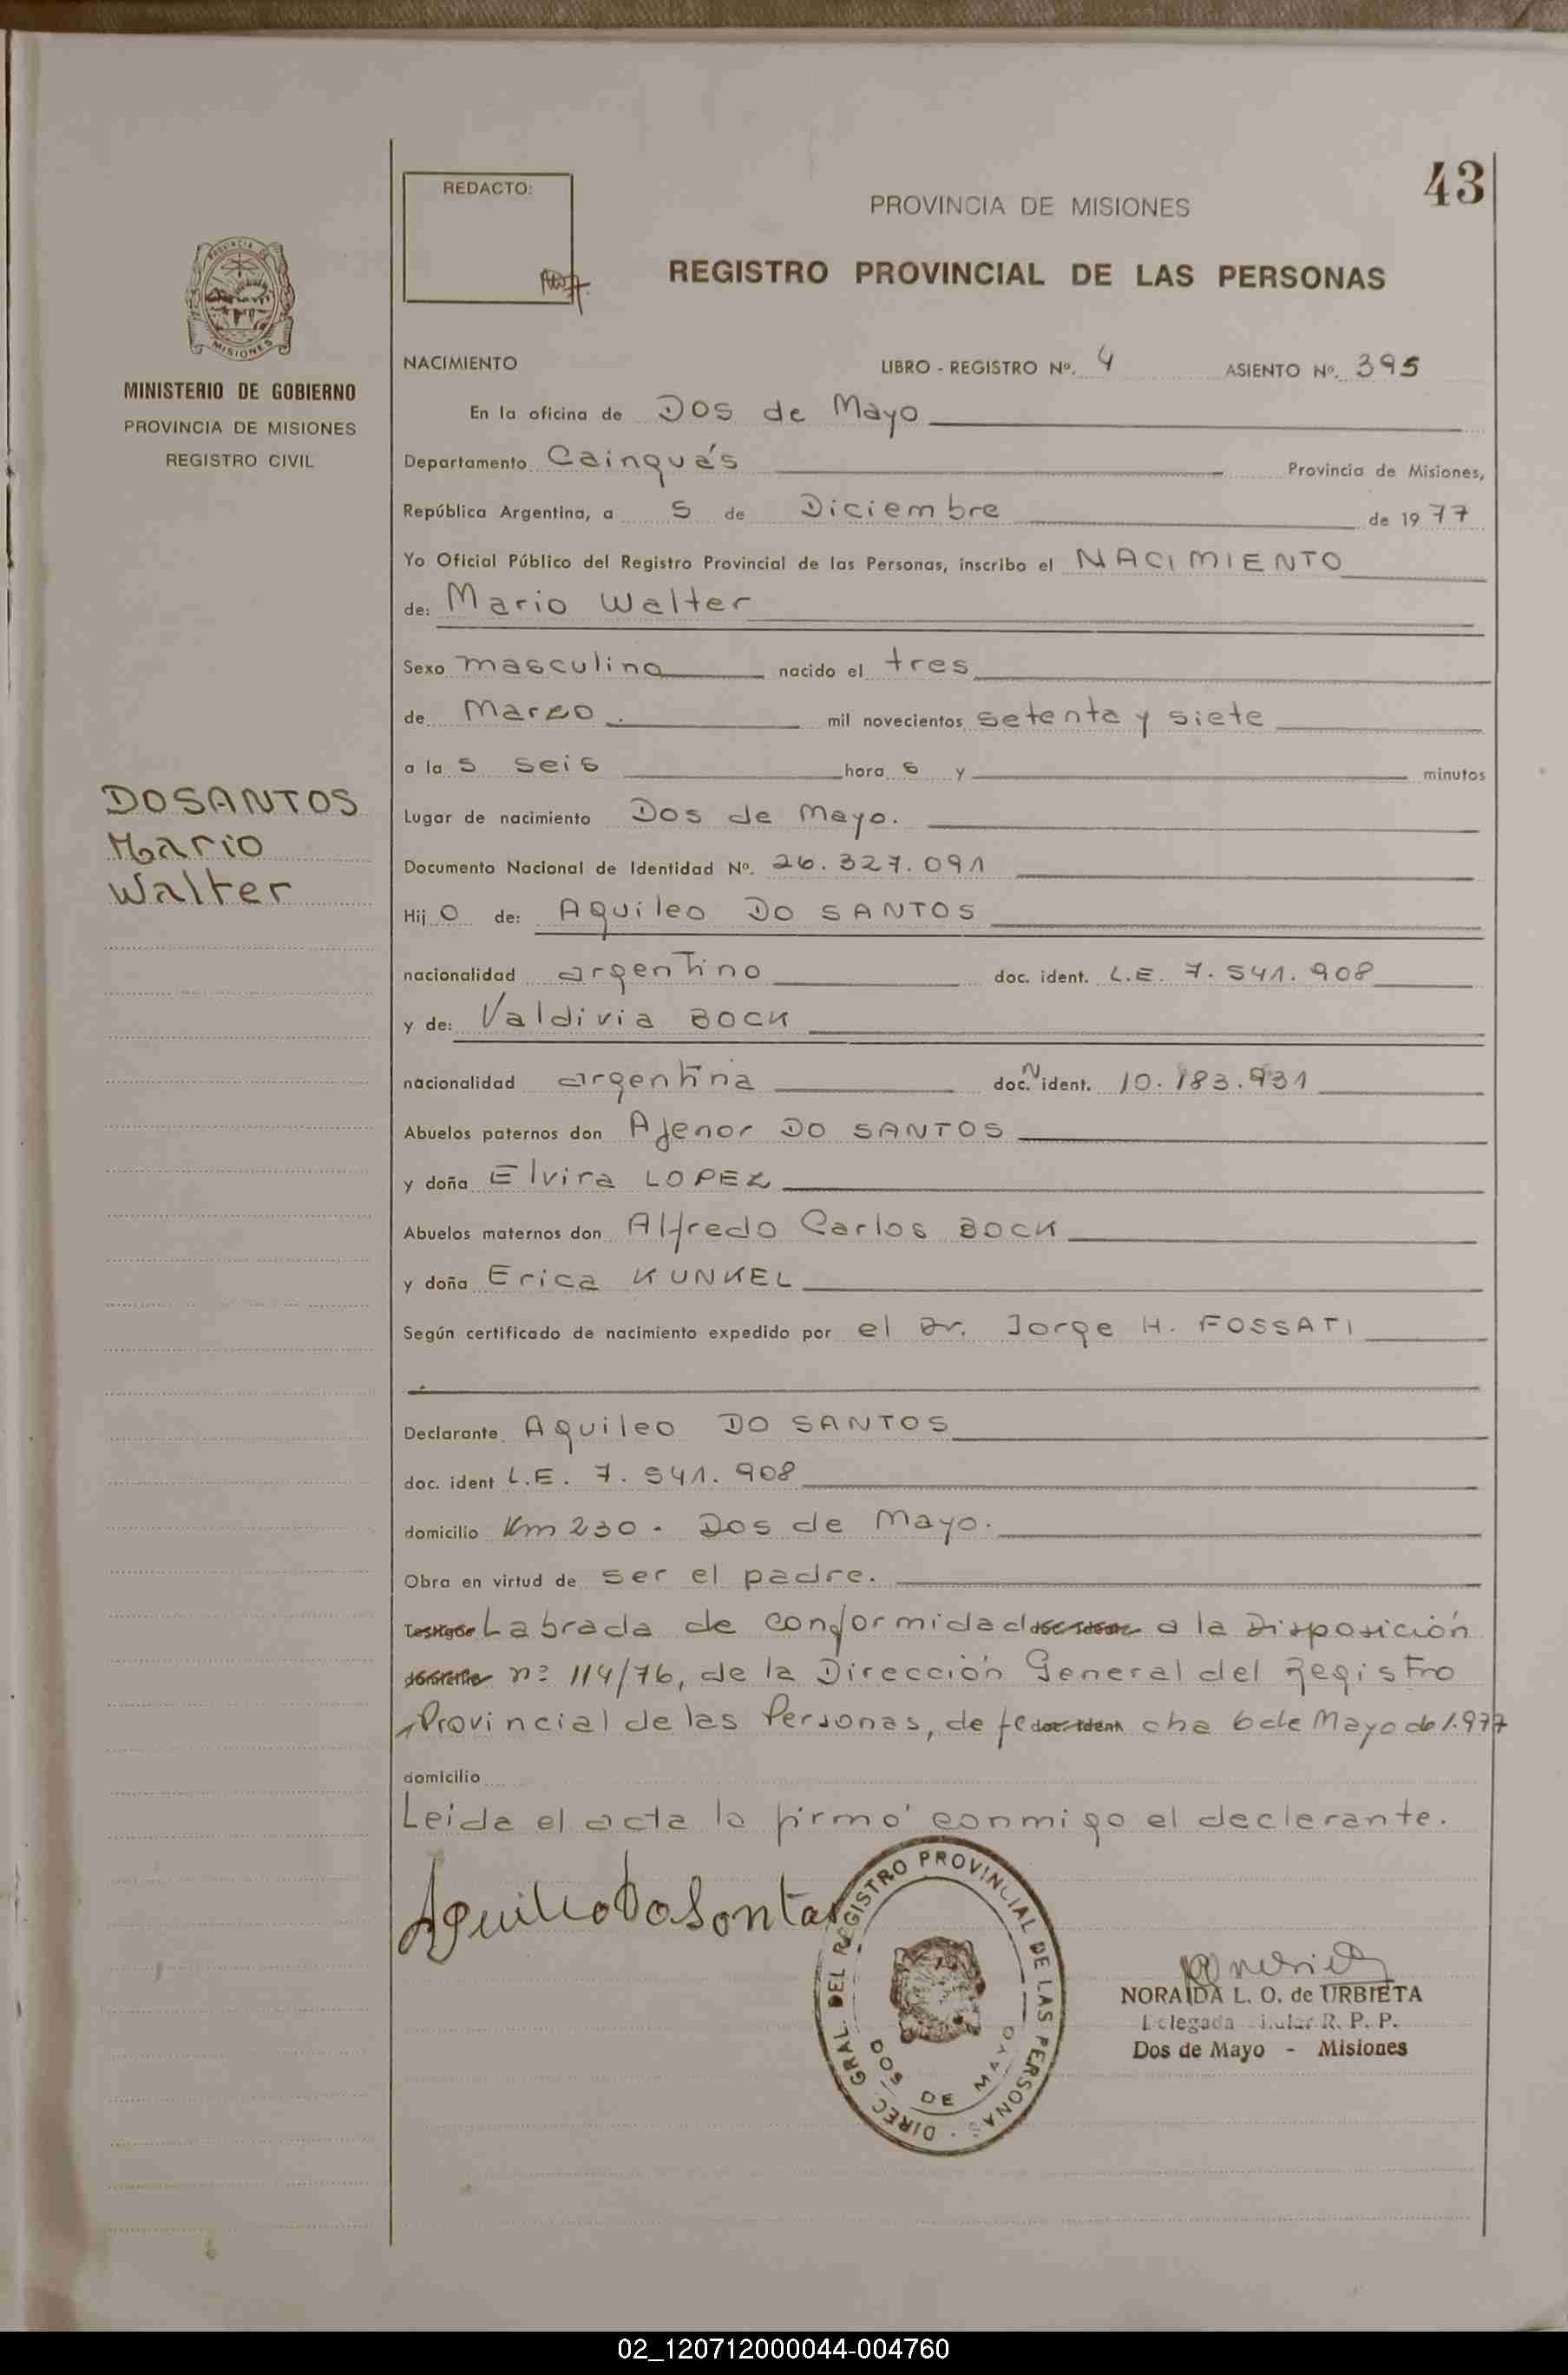 43
REDACTO:
PROVINCIA DE MISIONES
REGISTRO PROVINCIAL DE LAS PERSONAS
PROVINCIA DE
MISIONES
MINISTERIO DE GOBIERNO
PROVINCIA DE MISIONES
REGISTRO CIVIL
DOSANTOS
Mario
Walter
NACIMIENTO LIBRO - REGISTRO Nº. 4 ASIENTO Nº. 395
En la oficina de Dos de Mayo
Departamento Cainguás Provincia de Misiones,
República Argentina, a 5 de Diciembre de 1977
Yo Oficial Público del Registro Provincial de las Personas, inscribo el NACIMIENTO
de: Mario Walter
Sexo masculino nacido el tres
de Marzo. mil novecientos setenta y siete
a las seis horas y minutos
Lugar de nacimiento Dos de Mayo.
Documento Nacional de Identidad Nº. 26.327.091
Hijo de: Aquileo DO SANTOS
nacionalidad argentino doc. ident. L.E. 7.541.908
y de: Valdivia BOCK
nacionalidad argentina doc. N ident. 10.183.931
Abuelos paternos don Ajenor DO SANTOS
y doña Elvira LOPEZ
Abuelos maternos don Alfredo Carlos BOCK
y doña Erica KUNKEL
Según certificado de nacimiento expedido por el Dr. Jorge H. FOSSATI
Declarante Aquileo DO SANTOS
doc. ident L.E. 7.541.908
domicilio Km 230. Dos de Mayo.
Obra en virtud de ser el padre.
Testigos Labrada de conformidad a la Disposición
domicilio nº 114/76, de la Dirección General del Registro
Provincial de las Personas, de fe doc. ident. cha 6 de Mayo de 1.977
domicilio
Leida el acta la firmó conmigo el declarante.
Aquileo Do Santos
DIREC. GRAL. DEL REGISTRO PROVINCIAL DE LAS PERSONAS
DOS DE MAYO
NORAIDA L. O. de URBIETA
Delegada Titular R. P. P.
Dos de Mayo - Misiones
02_120712000044-004760